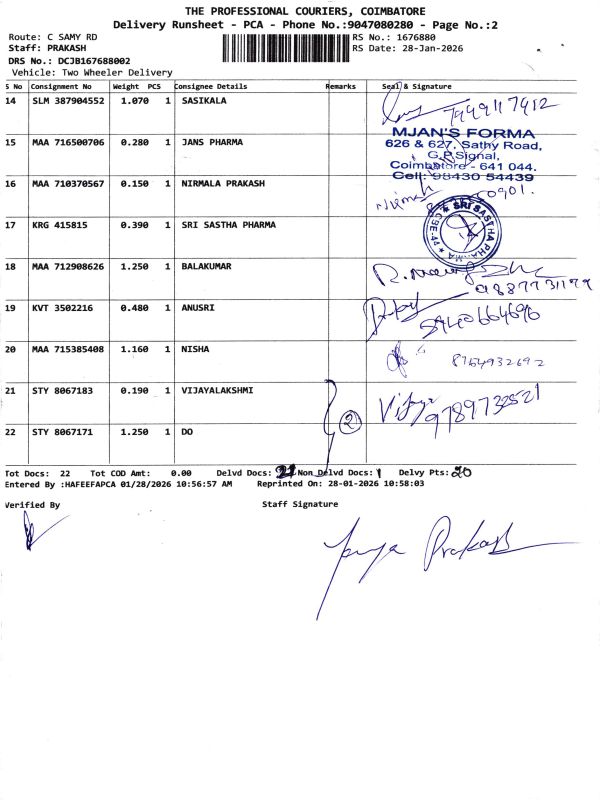 THE PROFESSIONAL COURIERS, COIMBATORE
Delivery Runsheet - PCA - Phone No.:9047080280 - Page No.:2
Route: C SAMY RD RS No.: 1676880
Staff: PRAKASH RS Date: 28-Jan-2026
DRS No.: DCJB167688002
Vehicle: Two Wheeler Delivery
S No Consignment No Weight PCS Consignee Details Remarks Seal & Signature
14 SLM 387904552 1.070 1 SASIKALA 7999117912
15 MAA 716500706 0.280 1 JANS PHARMA
MJAN'S FORMA
626 & 627, Sathy Road,
G.P.Signal,
Coimbatore - 641 044.
Cell: 98430 54439
16 MAA 710370567 0.150 1 NIRMALA PRAKASH
17 KRG 415815 0.390 1 SRI SASTHA PHARMA SRI SASTHA PHARMA CBE-4
18 MAA 712908626 1.250 1 BALAKUMAR
19 KVT 3502216 0.480 1 ANUSRI
20 MAA 715385408 1.160 1 NISHA 8754932692
21 STY 8067183 0.190 1 VIJAYALAKSHMI Vijaya 9789732521
22 STY 8067171 1.250 1 DO 2
Tot Docs: 22 Tot COD Amt: 0.00 Delvd Docs: 21 Non Delvd Docs: 1 Delvy Pts: 20
Entered By :HAFEEFAPCA 01/28/2026 10:56:57 AM Reprinted On: 28-01-2026 10:58:03
Verified By Staff Signature
Prakash